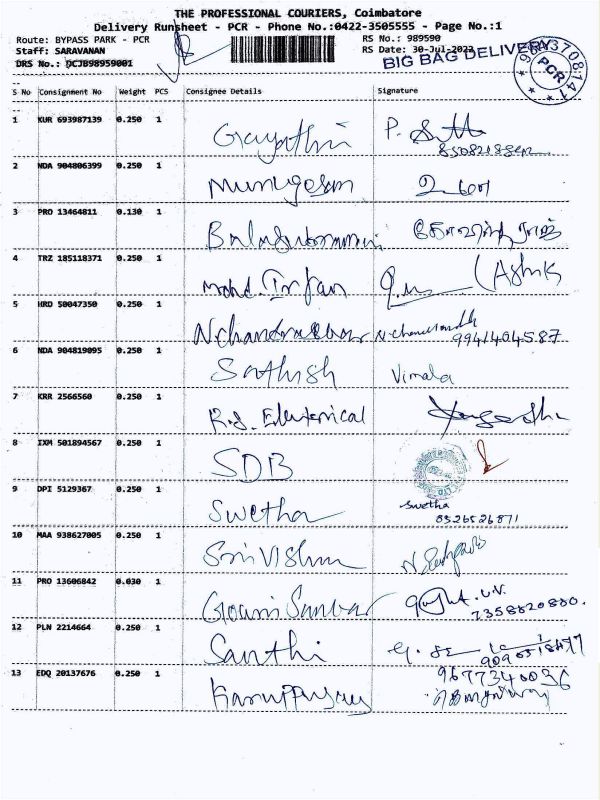 THE PROFESSIONAL COURIERS, Coimbatore
Delivery Runsheet - PCR - Phone No.:0422-3505555 - Page No.:1
Route: BYPASS PARK - PCR RS No.: 989590
Staff: SARAVANAN RS Date: 30-Jul-2022
BIG BAG DELIVERY
DRS No.: QCJB98959001
PCR
S No Consignment No Weight PCS Consignee Details Signature
1 KUR 693987139 0.250 1 Gayathri P.
2 NDA 904806399 0.250 1 Murugesan
3 PRO 13464811 0.130 1 Balasubramani
4 TRZ 185118371 0.250 1 Mohd. Irfan (Ashik
5 HRD 50047350 0.250 1 N chandrasekar
9941404587
6 NDA 904819095 0.250 1 Sathish Vimala
7 KRR 2566560 0.250 1 R.S. Electrical
8 IXM 501894567 0.250 1 SDB
9 DPI 5129367 0.250 1 Swetha Swetha
8526526871
10 MAA 938627005 0.250 1 Srivishnu
11 PRO 13606842 0.030 1 Gowri Sankar
7358820880.
12 PLN 2214664 0.250 1 Santhi
13 EDQ 20137676 0.250 1 9677340036